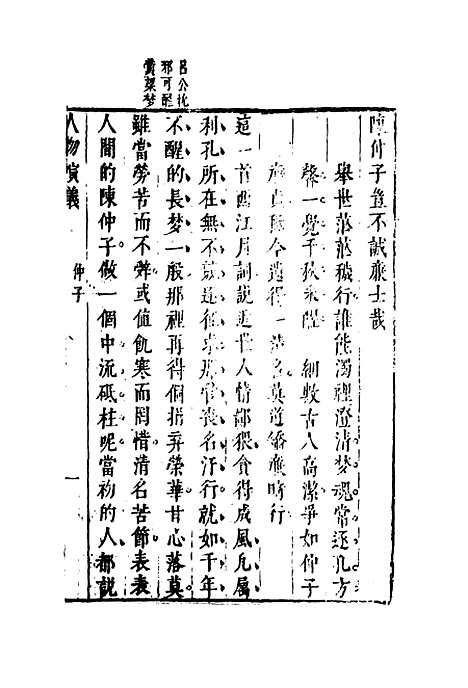 陳仲子豈不誠廉士哉
舉世茫茫穢行誰能濁裡澄清夢魂常逐孔方
一覺千秋未醒　細數古人高潔爭如仲子
廉貞于今遺得一清名莫道矯廉時行
這一首西江月詞說這世人情都猥貪得成風凡屬
利孔所在無不營逐徃求那管喪名汙行就如千年
不醒的長夢一般那裡再得個捐棄榮華甘心落莫
雖當勞苦而不辭或值飢寒而罔惜清名苦節表表
人間的陳仲子做一個中流砥柱呢當初的人都說
人物演義
仲子
一
呂公枕
邪可醒
黃粱夢